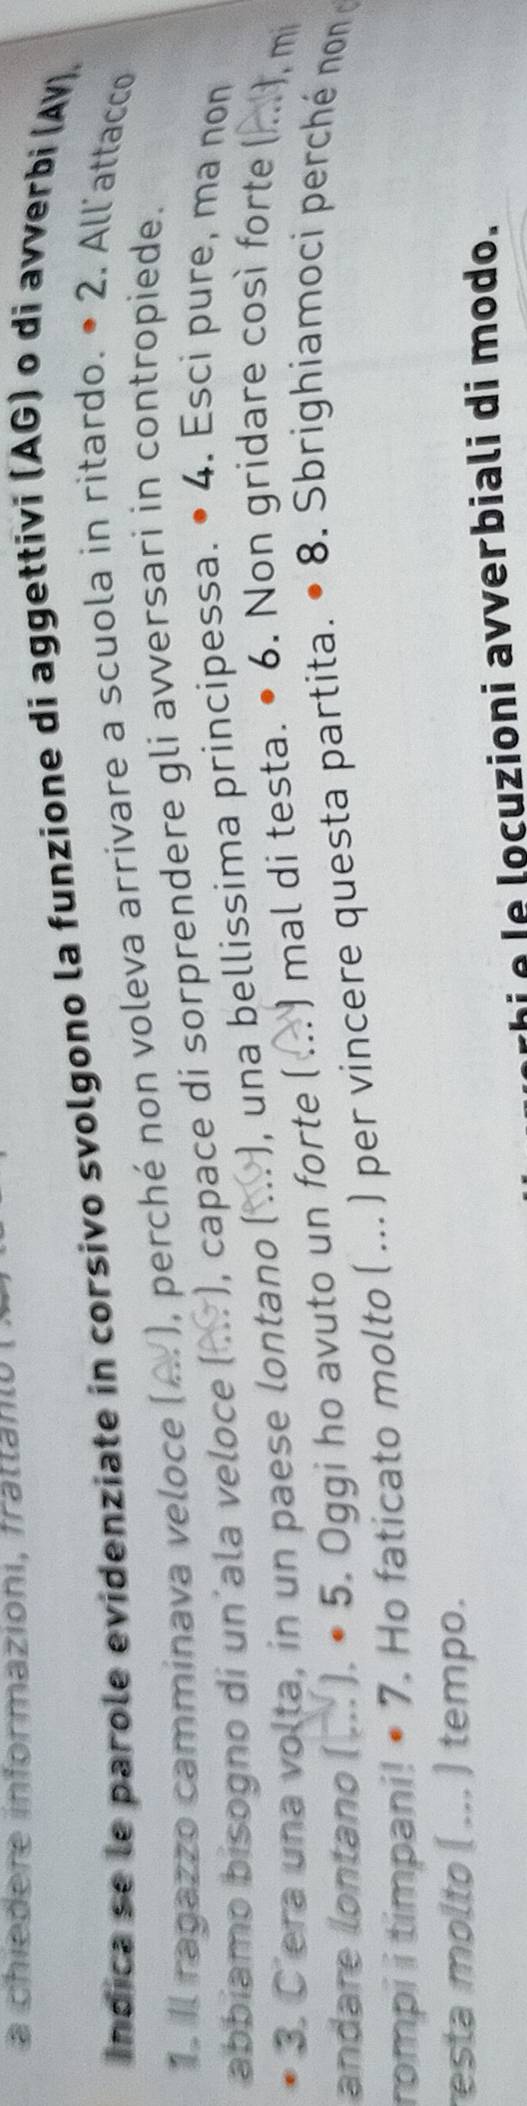 a chiedere informazioni, frattanto
Indica se le parole evidenziate in corsivo svolgono la funzione di aggettivi (AG) o di avverbi (AV).
1. Il ragazzo camminava veloce (AV), perché non voleva arrivare a scuola in ritardo. • 2. All'attacco
abbiamo bisogno di un'ala veloce (AG), capace di sorprendere gli avversari in contropiede.
• 3. C'era una volta, in un paese lontano (AG), una bellissima principessa. • 4. Esci pure, ma non
andare lontano (AV). • 5. Oggi ho avuto un forte (AV) mal di testa. • 6. Non gridare così forte (...), mi
rompi i timpani! • 7. Ho faticato molto (...) per vincere questa partita. • 8. Sbrighiamoci perché non c
resta molto (...) tempo.
e le locuzioni avverbiali di modo.